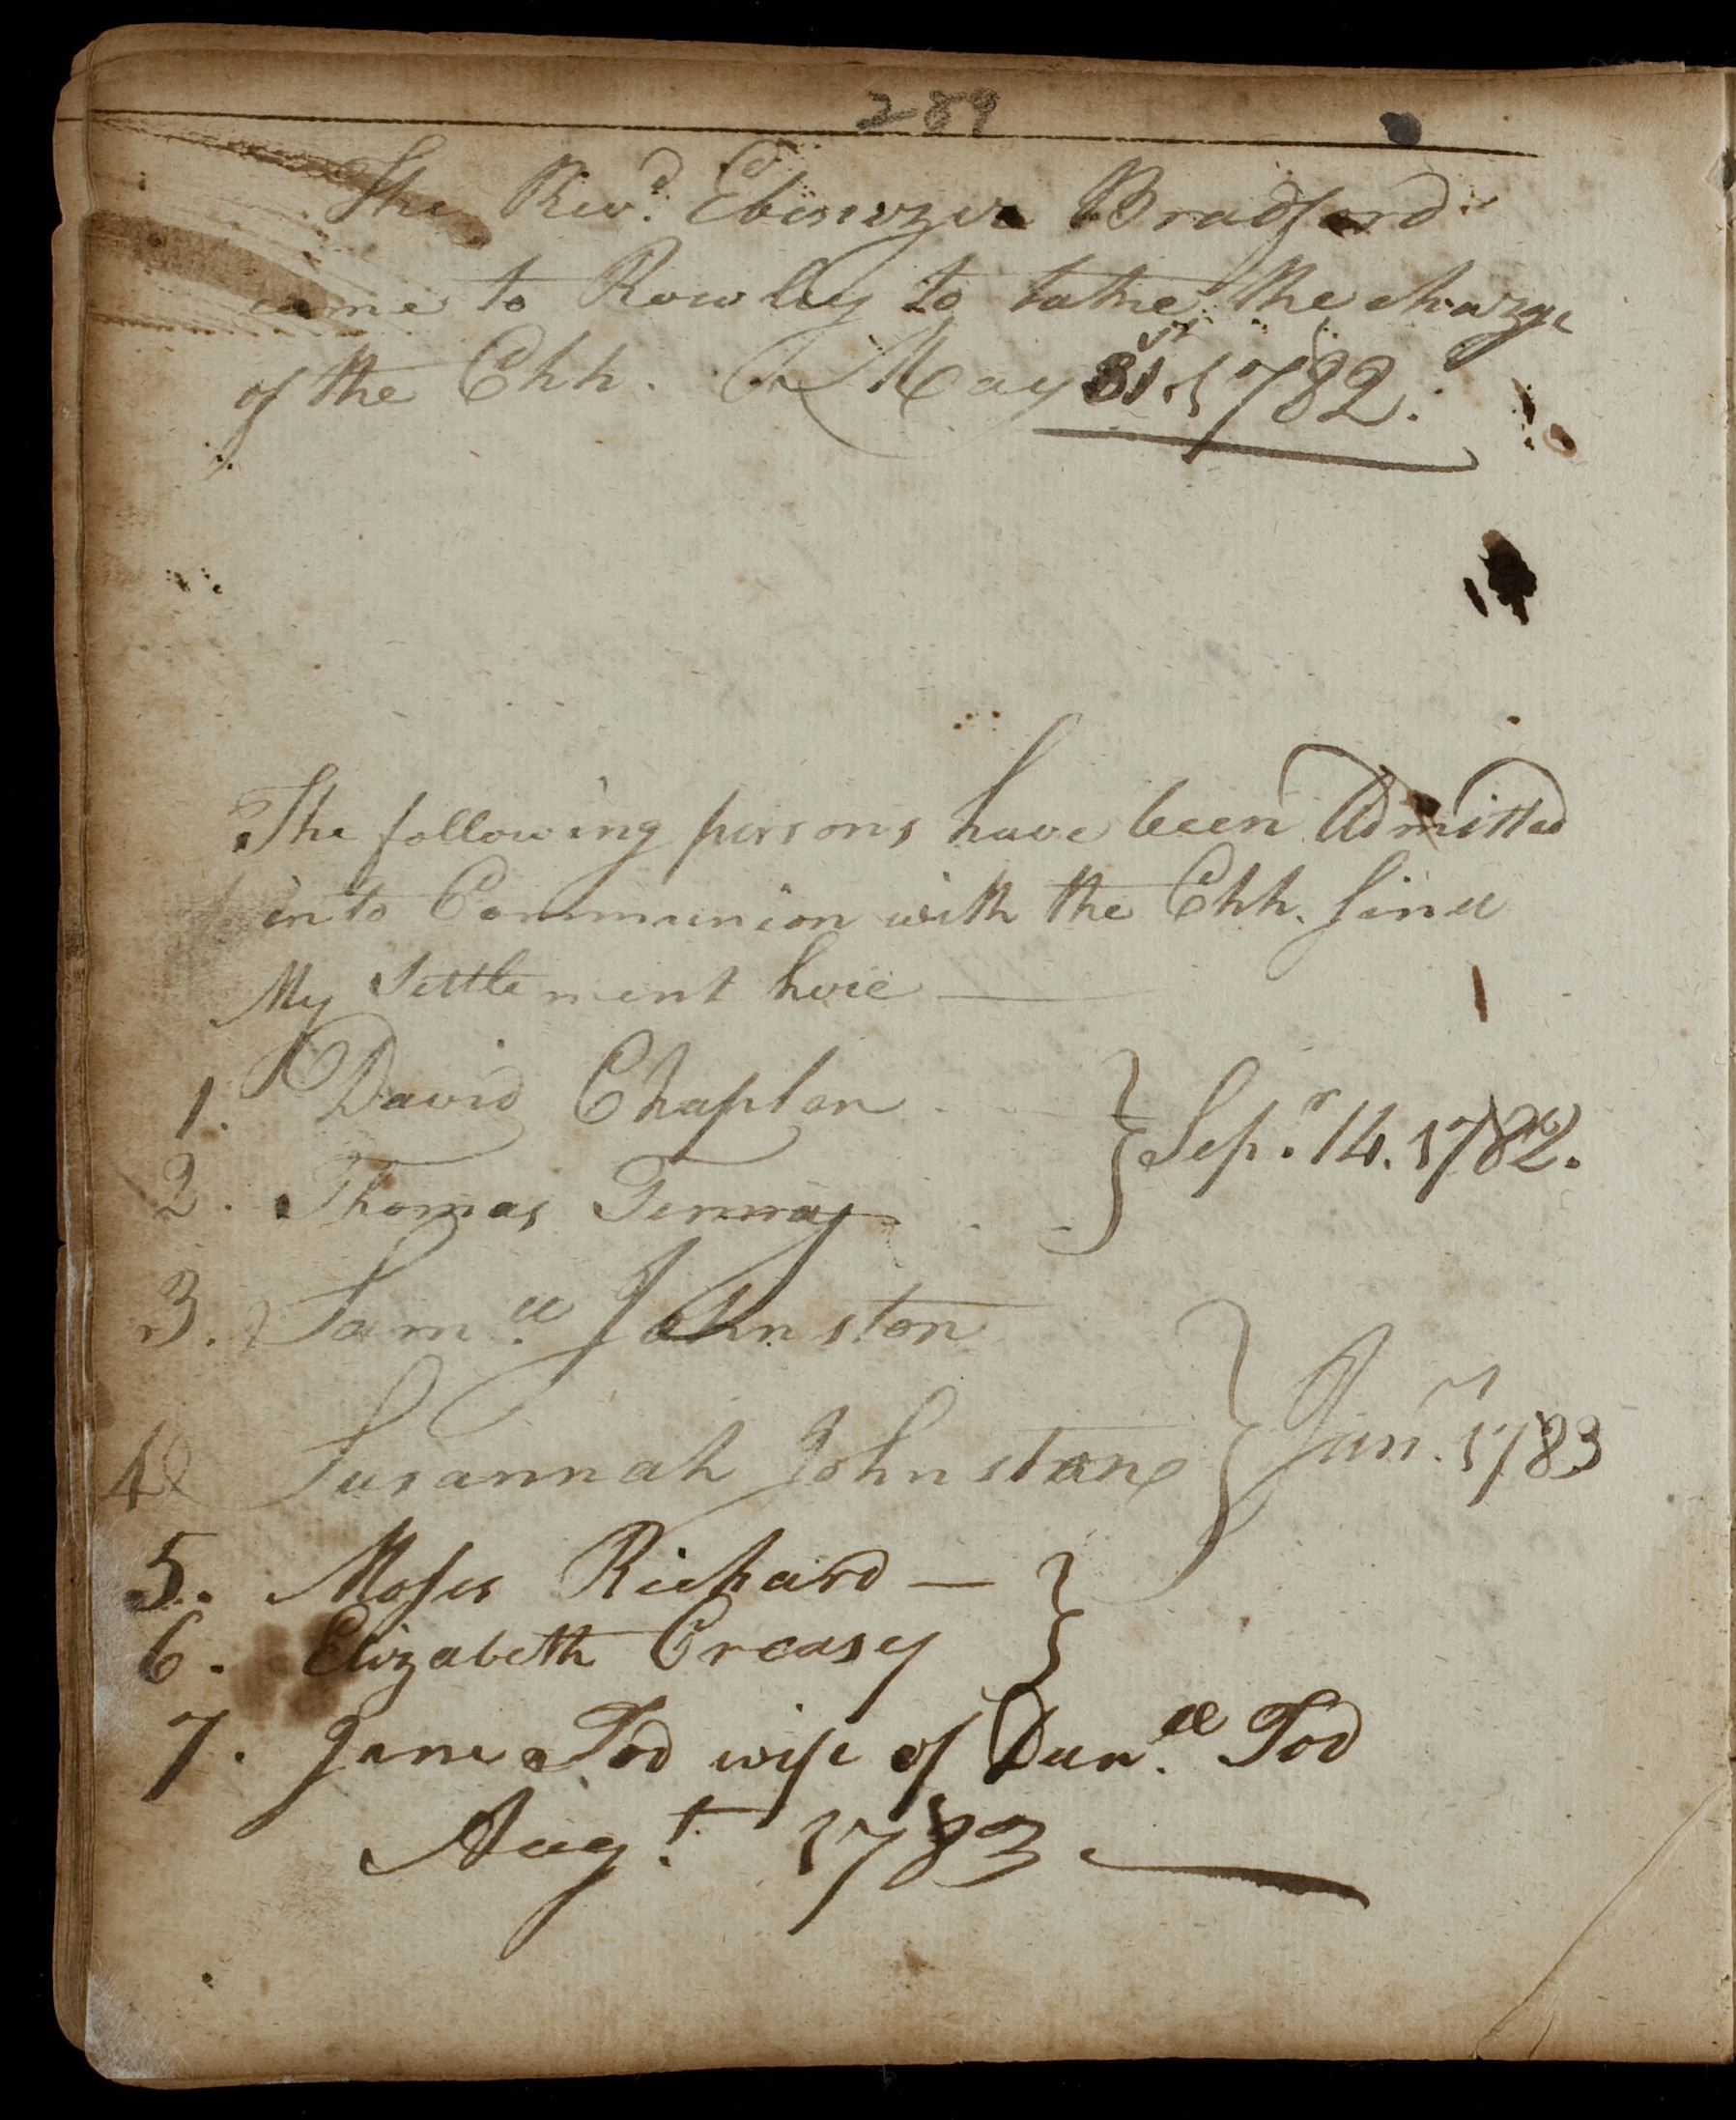 289
The Revd. Ebenezer Bradford
came to Rowley to take the charge
of the Chh. May 31st. 1782.
The following persons have been Admitted
into Communion with the Chh. since
My Settlement here —
1. David Chaplen
2. Thomas Tenney
} Sepr. 14. 1782.
3. Samll. Johnston
4 Susannah Johnston
} Jany. 1783
5. Moses Richard — }
6. Elizabeth Creasey
7. Jane Tod wife of Danll. Tod
Augt. 1783